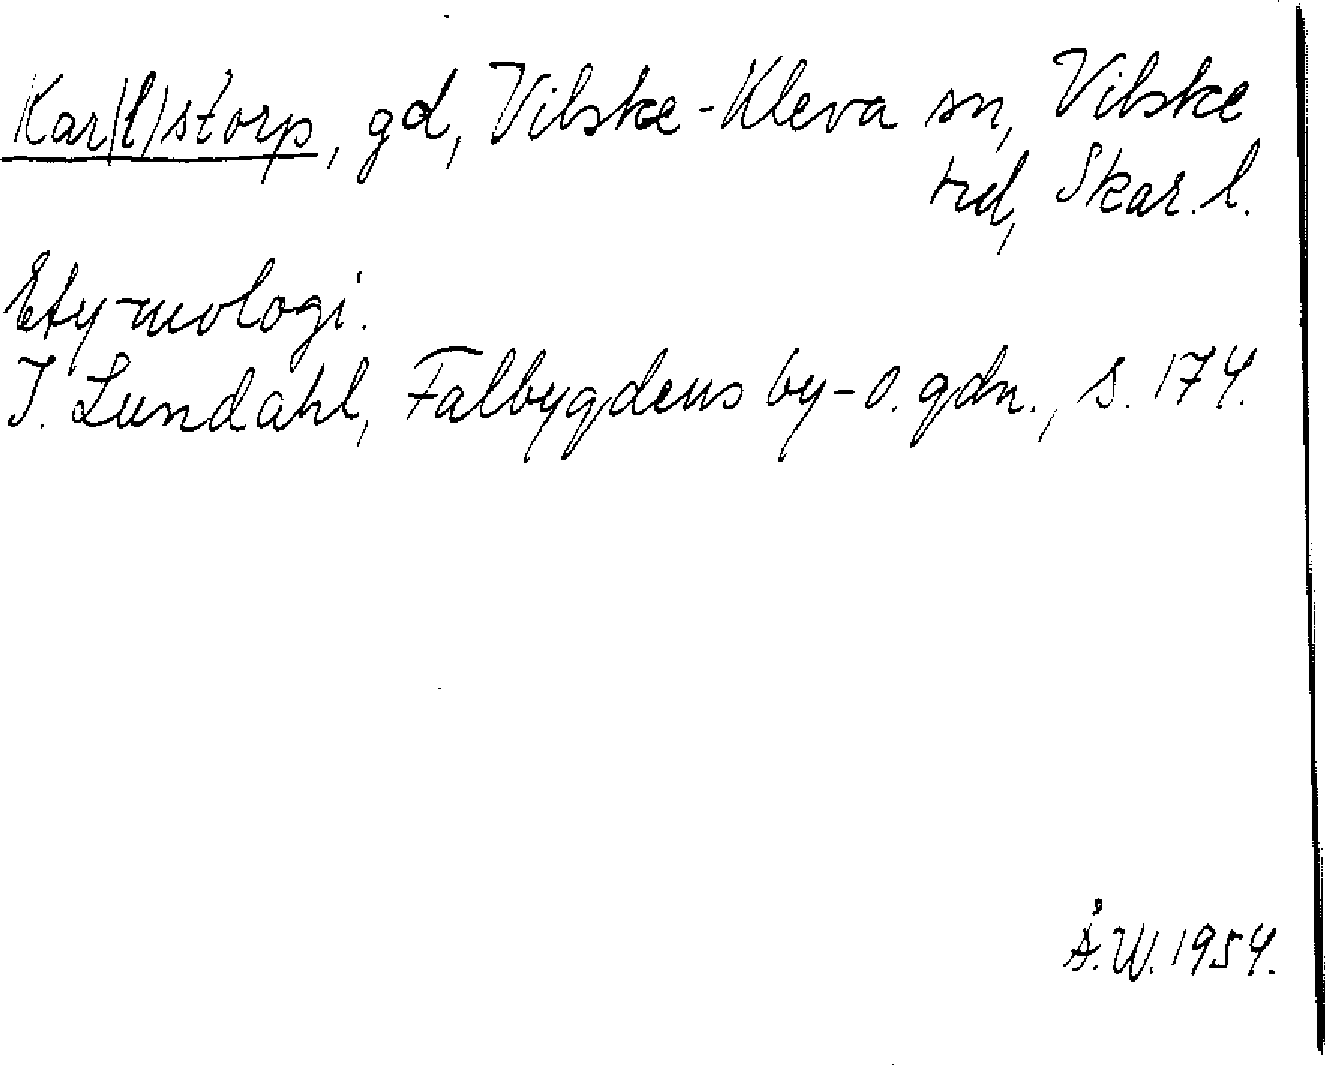 Kar(l)storp, gd, Vilske-Kleva sn, Vilske
hd, Skar. l.
Etymologi.
I. Lundahl, Falbygdens by- o. gdn., s. 174.
Å.W. 1954.